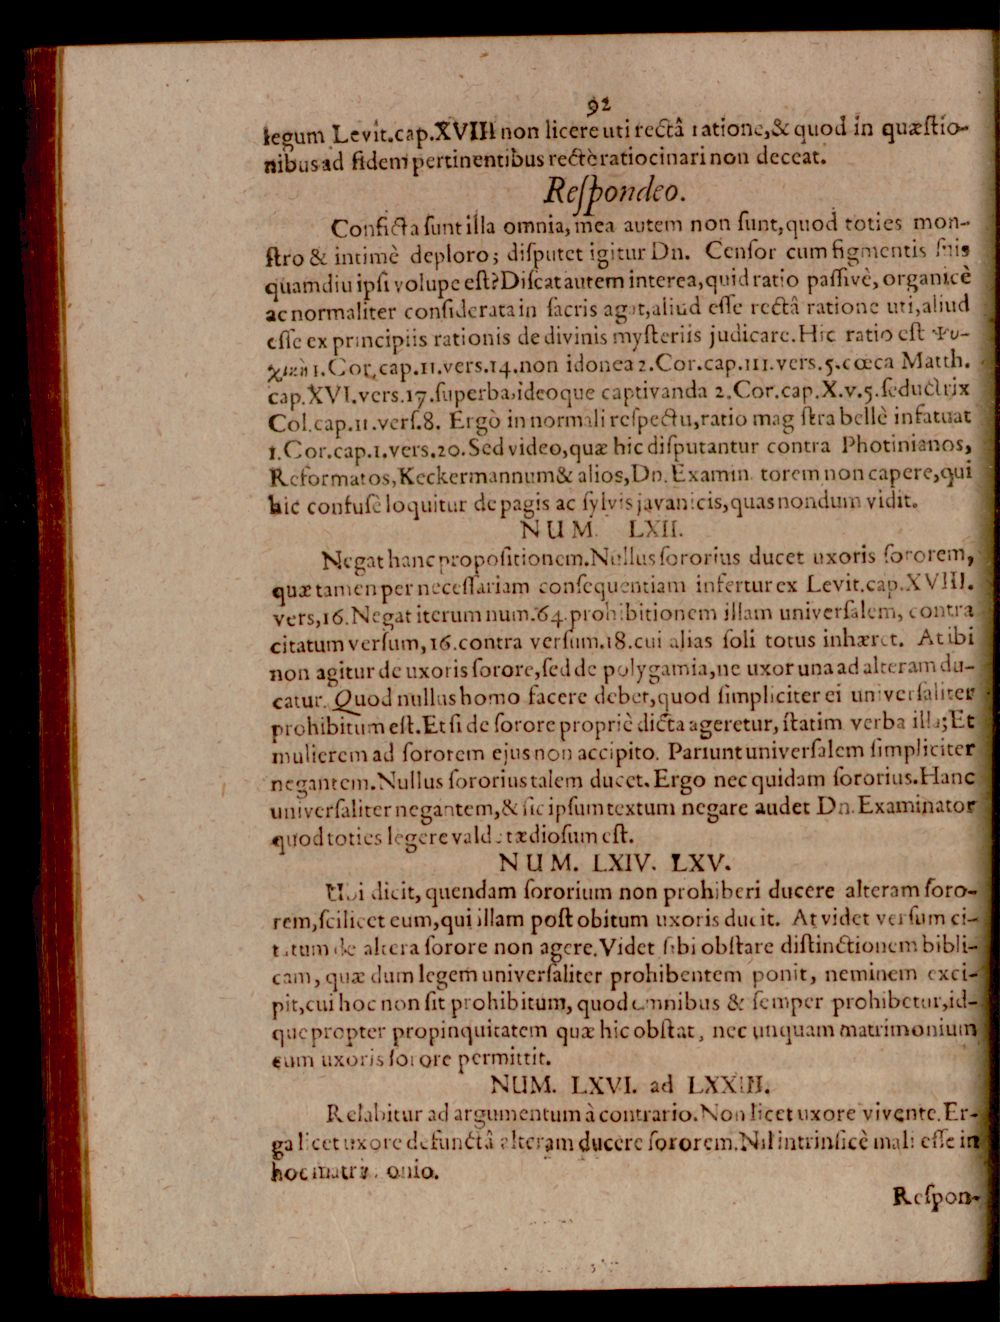 92
legum Levit.cap.XVIII non licere uti rectâ ratione,& quod in quæstio-
nibus ad fidem pertinentibus rectè ratiocinari non deceat.
Respondeo.
Conficta sunt illa omnia, mea autem non sunt, quod toties mon-
stro & intimè deploro; disputet igitur Dn. Censor cum figmentis suis
quamdiu ipsi volupe est? Discat autem interea, quid ratio passivè, organicè
ac normaliter considerata in sacris agat, aliud esse rectâ ratione uti, aliud
esse ex principiis rationis de divinis mysteriis judicare. Hic ratio est Ψυ-
χικὴ 1.Cor.cap.11.vers.14.non idonea 2.Cor.cap.111.vers.5.cœca Matth.
cap.XVI.vers.17.superba,ideoque captivanda 2.Cor.cap.X.v.5.seductrix
Col.cap.11.vers.8. Ergò in normali respectu, ratio magistra bellè infatuat
1.Cor.cap.1.vers.20. Sed video, quæ hic disputantur contra Photinianos,
Reformatos, Keckermannum & alios, Dn. Examinatorem non capere, qui
hic confusè loquitur de pagis ac sylvis javanicis, quas nondum vidit.
NUM. LXII.
Negat hanc propositionem. Nullus sororius ducet uxoris sororem,
quæ tamen per necessariam consequentiam infertur ex Levit.cap.XVIII.
vers,16. Negat iterum num.64.prohibitionem illam universalem, contra
citatum versum,16.contra versum.18.cui alias soli totus inhæret. At ibi
non agitur de uxoris sorore, sed de polygamia, ne uxor una ad alteram du-
catur. Quod nullus homo facere debet, quod simpliciter ei universaliter
prohibitum est. Et si de sorore propriè dicta ageretur, statim verba illa; Et
mulierem ad sororem ejus non accipito. Pariunt universalem simpliciter
negantem. Nullus sororius talem ducet. Ergo nec quidam sororius. Hanc
universaliter negantem, & sic ipsum textum negare audet Dn. Examinator
quod toties legere valde tædiosum est.
NUM. LXIV. LXV.
Ubi dicit, quendam sororium non prohiberi ducere alteram soro-
rem, scilicet eum, qui illam post obitum uxoris ducit. At videt versum ci-
tatum de altera sorore non agere. Videt sibi obstare distinctionem bibli-
cam, quæ dum legem universaliter prohibentem ponit, neminem exci-
pit, cui hoc non sit prohibitum, quod omnibus & semper prohibetur, id-
que propter propinquitatem quæ hic obstat, nec unquam matrimonium
cum uxoris sorore permittit.
NUM. LXVI. ad LXXIII.
Relabitur ad argumentum à contrario. Non licet uxore vivente. Er-
ga licet uxore defunctâ alteram ducere sororem. Nil intrinsicè mali esse in
hoc matrimonio.
Respon-